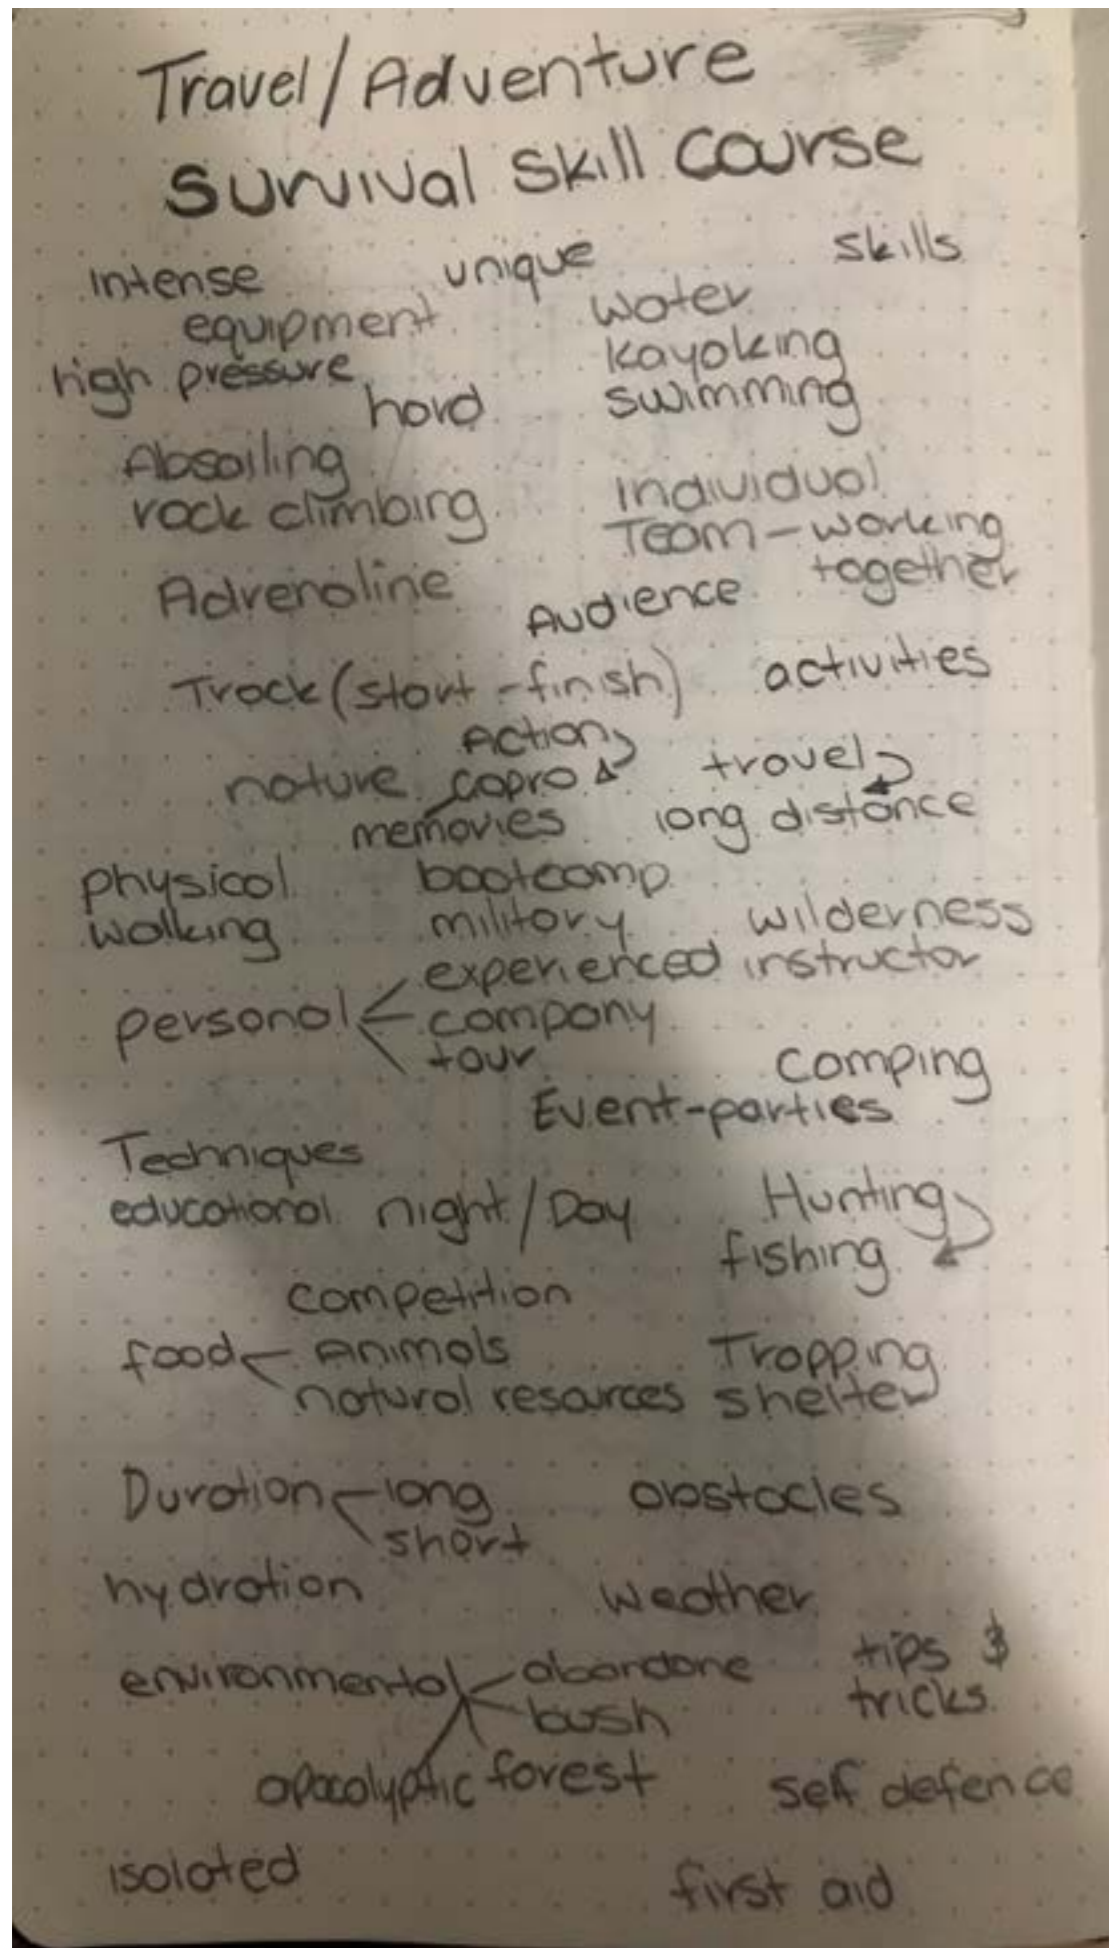 Travel/Adventure
Survival Skill Course
Intense unique skills
equipment water
high pressure kayaking
hard swimming
Absailing
rock climbing Individual
Team - working
together
Adrenaline Audience
Track (start - finish) activities
Action
nature gopro travel
memories long distance
physical bootcamp
walking military wilderness
experienced instructor
personal company
tour camping
Event-parties
Techniques
educational night/Day Hunting
fishing
competition
food Animals Trapping
natural resources shelter
Duration long obstacles
short
hydration weather
environmental abandone tips &
bush tricks
apacolyptic forest self defence
isolated first aid